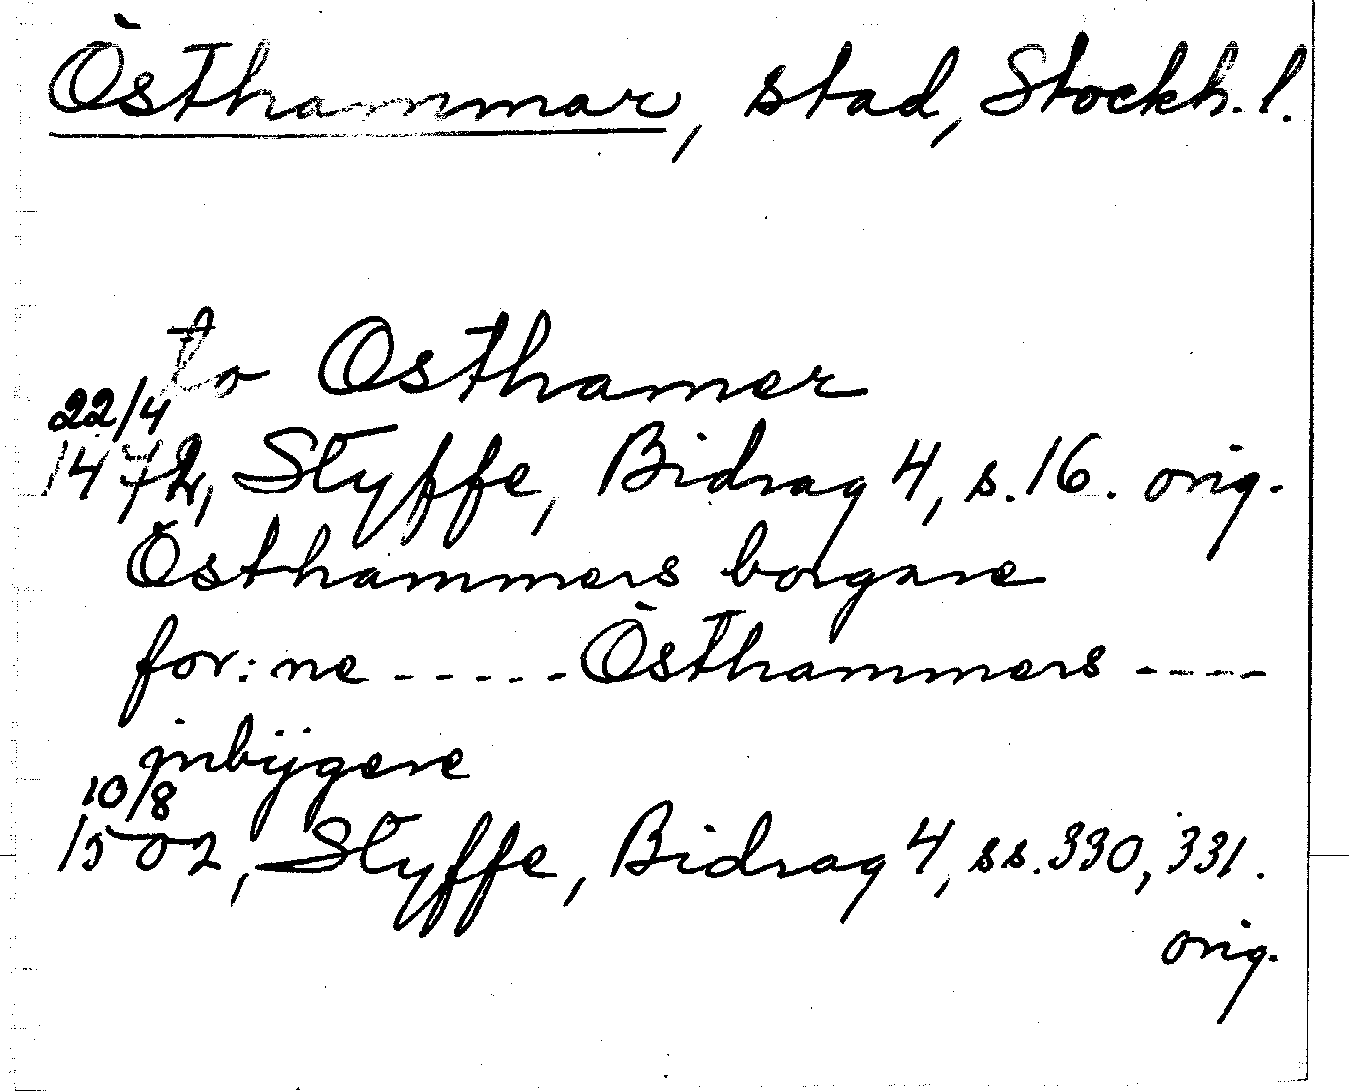 Östhammar, stad, Stockh. l.
to Osthamer
22/4
1472, Styffe, Bidrag 4, s. 16. orig.
Östhammers borgare
for: ne ----- Östhammers ----
jnbÿgere
10/8
1502, Styffe, Bidrag 4, ss. 330, 331.
orig.